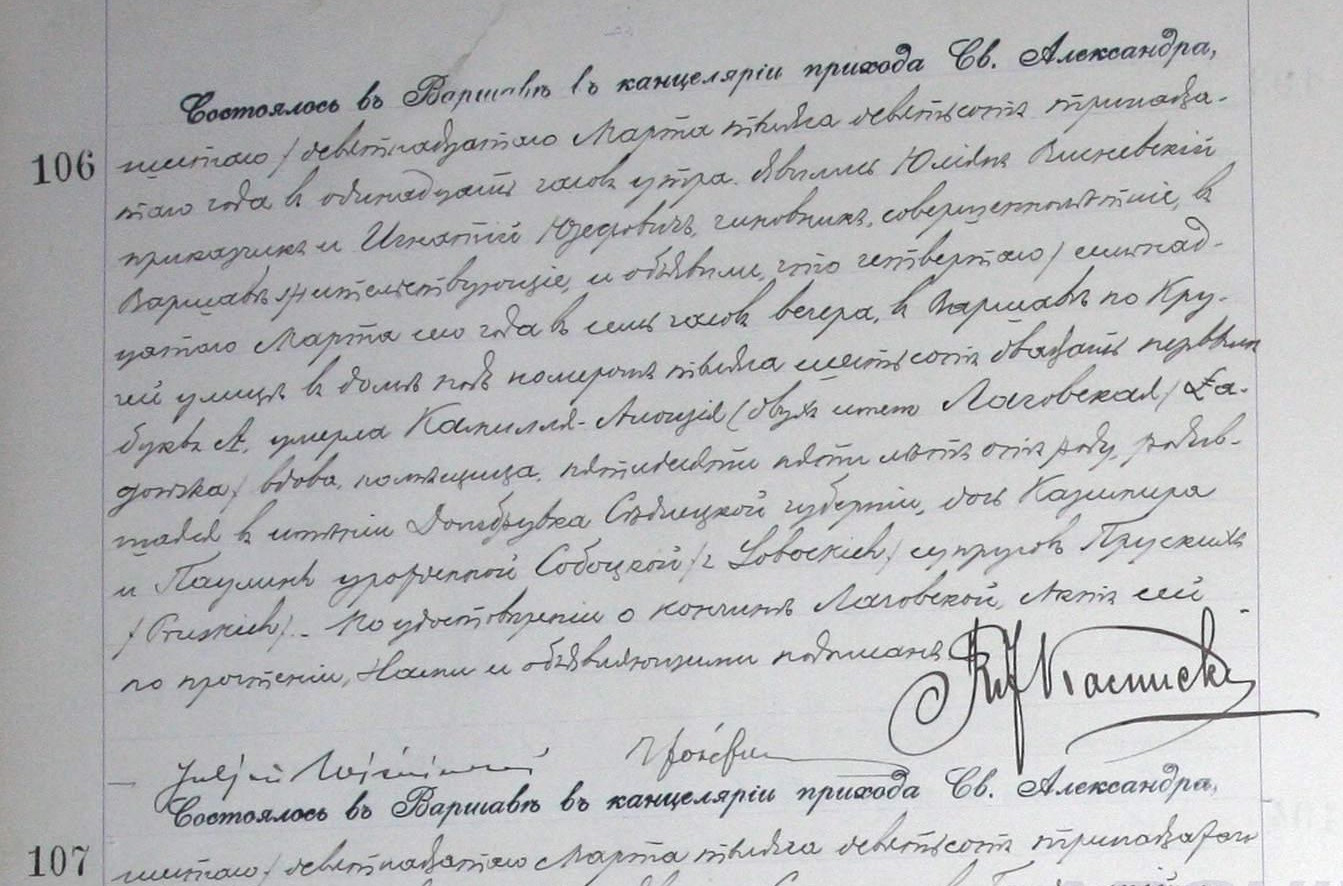 Состоялось въ Варшавѣ въ канцеляріи прихода Св. Александра,
106 шестаго / девятнадцатаго Марта тысяча девятьсотъ тринадца-
таго года въ одинадцать часовъ утра. Явились Юліянъ Висневскій
приказчикъ и Игнатій Юзефовичъ, чиновникъ, совершеннолѣтніе, въ
Варшавѣ жительствующіе, и объявили, что четвертаго / семнад-
цатаго Марта сего года въ семь часовъ вечера, въ Варшавѣ по Кру-
чей улицѣ въ домѣ подъ номеромъ тысяча шестьсотъ двадцать первымъ
буква А, умерла Камилля-Алоизія (двухъ именъ Лаговская / Ła-
gowska / вдова, помѣщица, пятидесяти пяти лѣтъ отъ роду, родив-
шаяся въ имѣніи Домбрувка Сѣдлецкой губерніи, дочь Казимира
и Паулины урожденной Собоцкой / z Sobockich / супруговъ Прускихъ
/ Pruskich /. По удостовѣреніи о кончинѣ Лаговской, Актъ сей
по прочтеніи, Нами и объявляющими подписанъ
Juljan Wiśniewski
Состоялось въ Варшавѣ въ канцеляріи прихода Св. Александра,
107 шестаго / девятнадцатаго Марта тысяча девятьсотъ тринадцатаго